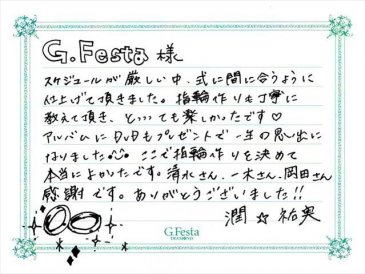 G.Festa 様
スケジュールが厳しい中、式に間に合うように
仕上げて頂きました。指輪作りも丁寧に
教えて頂き、と‥‥ても楽しかったです♡
アルバムにDVDもプレゼントで一生の思い出に
なりました ここで指輪作りを決めて
本当によかったです。清水さん、一木さん、岡田さん
感謝です。ありがとうございました!!
潤☆祐実
G.Festa
DIAMOND